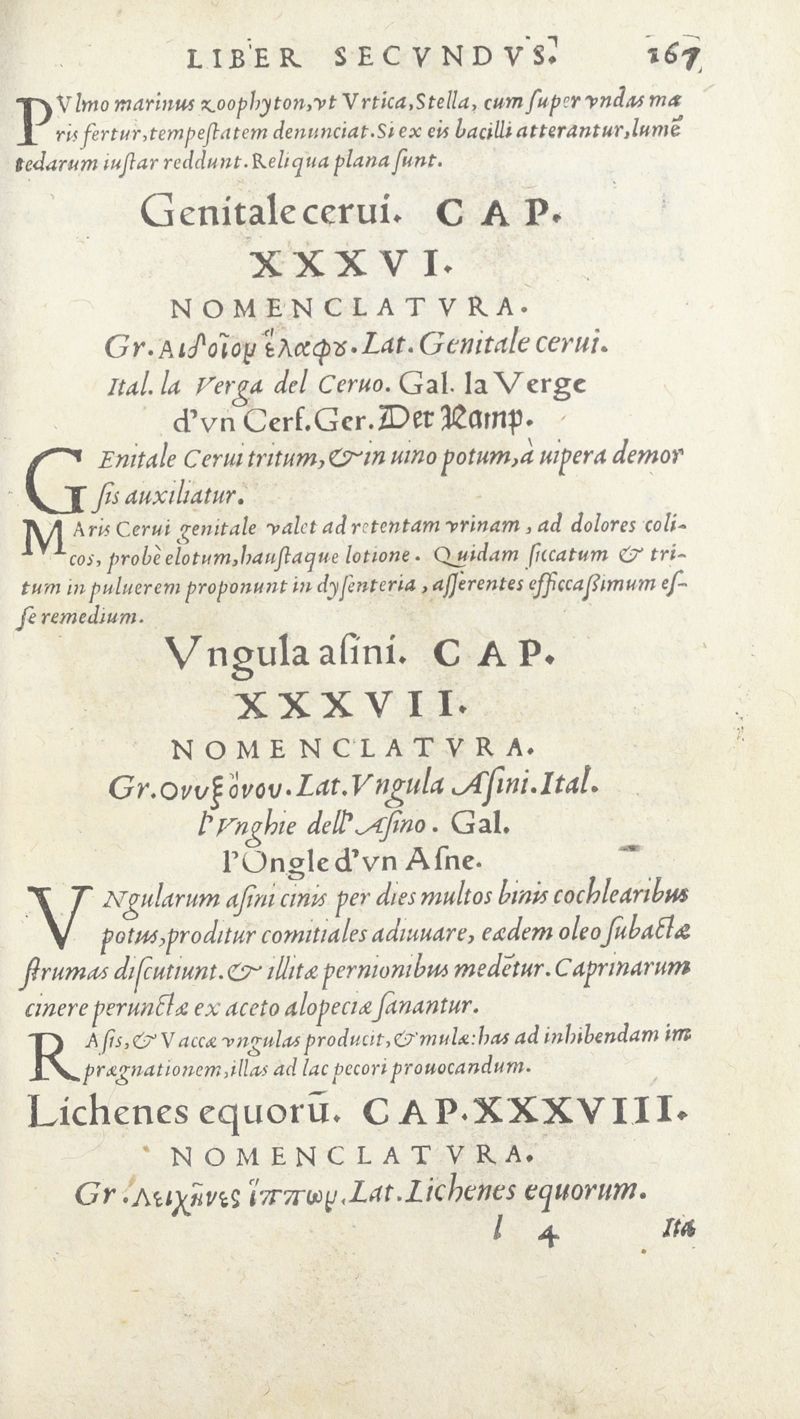 LIBER SECVNDVS. 167
PVlmo marinus zoophyton, vt Vrtica, Stella, cum ſuper vndas ma
ris fertur, tempeſtatem denunciat. Si ex eis bacilli atterantur, lumē
tedarum iuſtar reddunt. Reliqua plana ſunt.
Genitale cerui. CAP.
XXXVI.
NOMENCLATVRA.
Gr. Αιδοῖομ ἐλαφȣ. Lat. Genitale cerui.
Ital. la Verga del Ceruo. Gal. la Verge
d'vn Cerf. Ger. Der Ramp.
GEnitale Cerui tritum, & in uino potum, à uipera demor
ſis auxiliatur.
MAris Cerui genitale valet ad retentam vrinam, ad dolores coli-
cos, probè elotum, hauſtaque lotione. Quidam ſiccatum & tri-
tum in puluerem proponunt in dyſenteria, aſſerentes efficcaſſimum eſ-
ſe remedium.
Vngula aſini. CAP.
XXXVII.
NOMENCLATVRA.
Gr. ονυξ ὄνου. Lat. Vngula Aſini. Ital.
l'Vnghie dell'Aſino. Gal.
l'Ongle d'vn Aſne.
VNgularum aſini cinis per dies multos binis cochlearibus
potus, proditur comitiales adiuuare, eædem oleo ſubactæ
ſtrumas diſcutiunt. & illitæ pernionibus medētur. Caprinarum
cinere perunctæ ex aceto alopeciæ ſanantur.
RAſis, & Vaccæ vngulas producit, & mulæ: has ad inhibendam im
prægnationem, illas ad lac pecori prouocandum.
Lichenes equorū. CAP. XXXVIII.
NOMENCLATVRA.
Gr. Λειχῆνες ἵππωμ. Lat. Lichenes equorum.
l 4 Ita